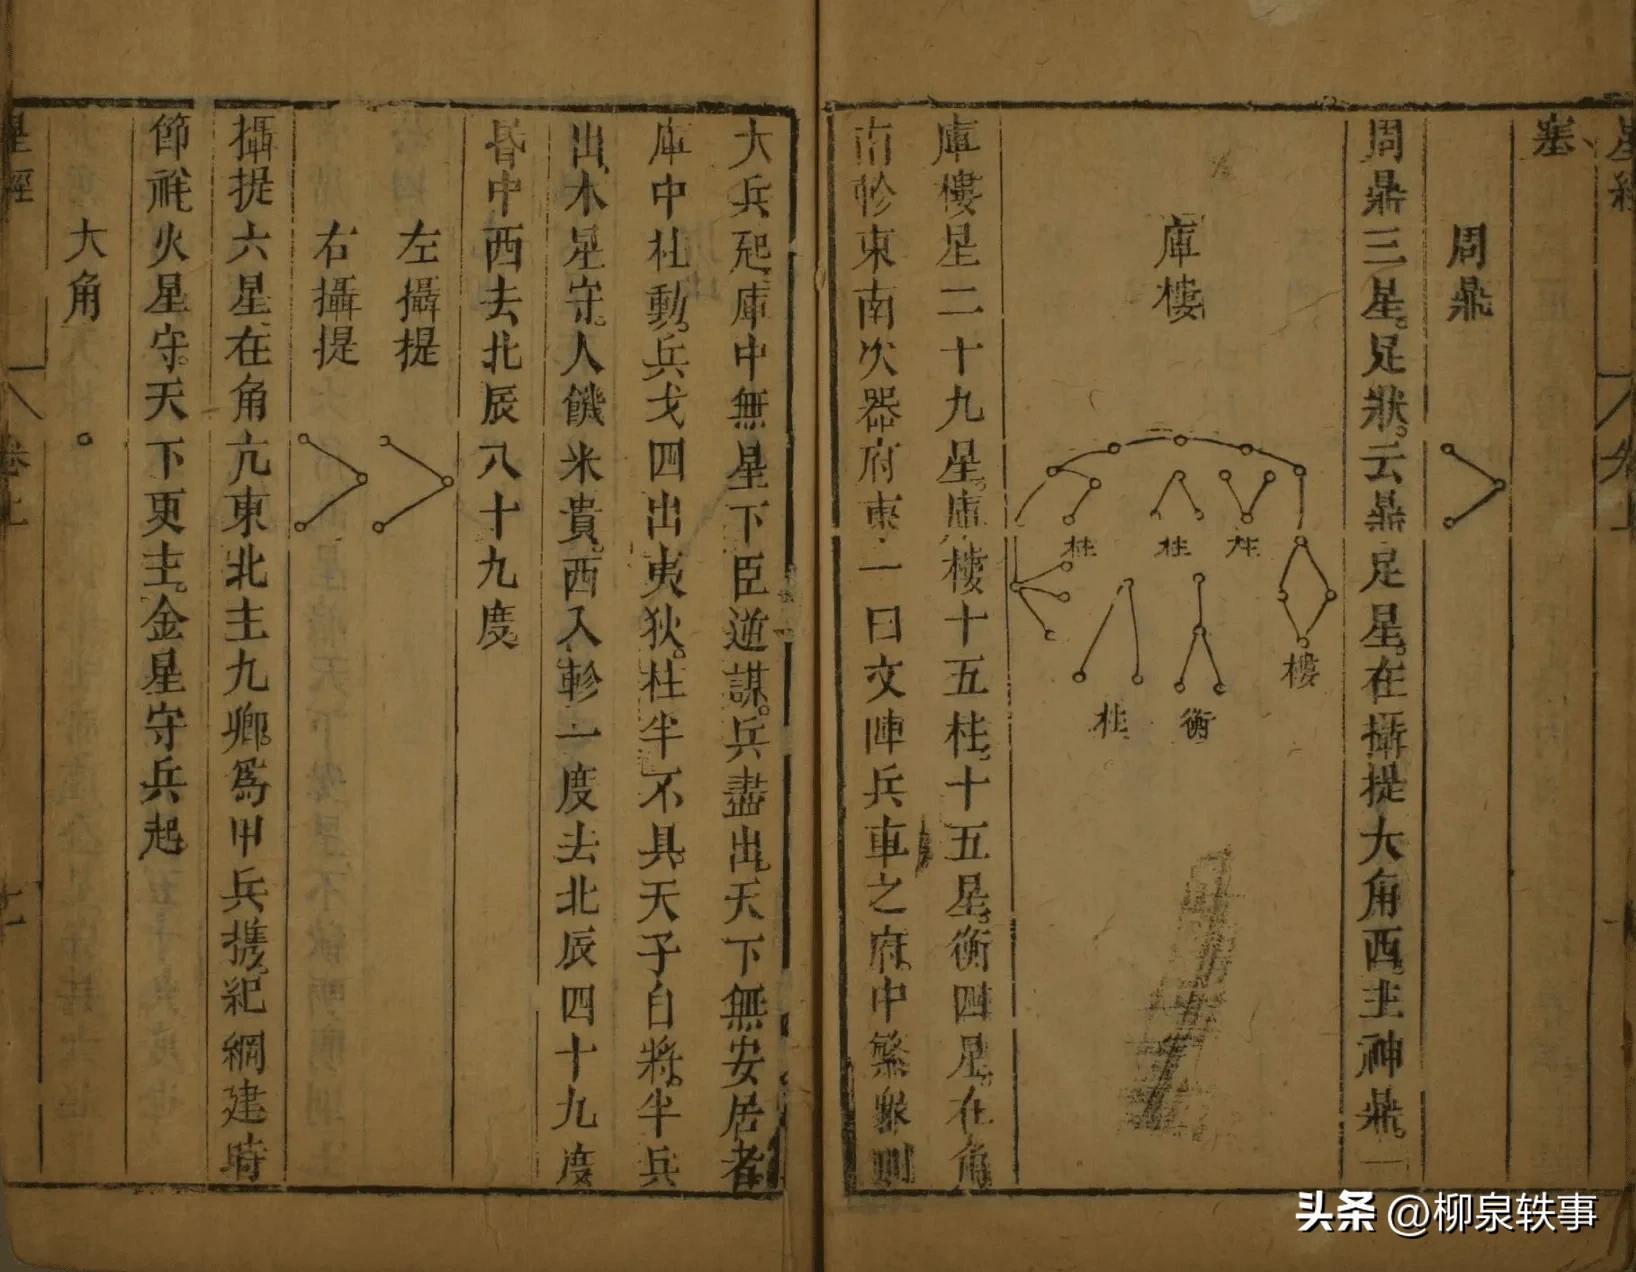 星經
塞
周鼎
周鼎三星。足狀。云鼎足星。在攝提大角西。主神鼎。一
庫樓
柱
柱
柱
樓
衡
柱
庫樓星二十九星。庫樓十五柱。十五星。衡四星。在角
南軫東南次器府東。一曰文陣兵車之府。中繁衆則
大兵起。庫中無星下臣逆謀。兵盡出。天下無安居者
庫中柱動。兵戈四出夷狄。柱半不具。天子自將。半兵
出。木星守。人饑米貴。西入軫一度去北辰四十九度
昏中西去北辰八十九度
左攝提
右攝提
攝提六星在角亢東北主九卿。爲甲兵攜。紀綱建時
節祥火星守。天下更主。金星守兵起
大角
星經
卷上
七
头条 @柳泉轶事